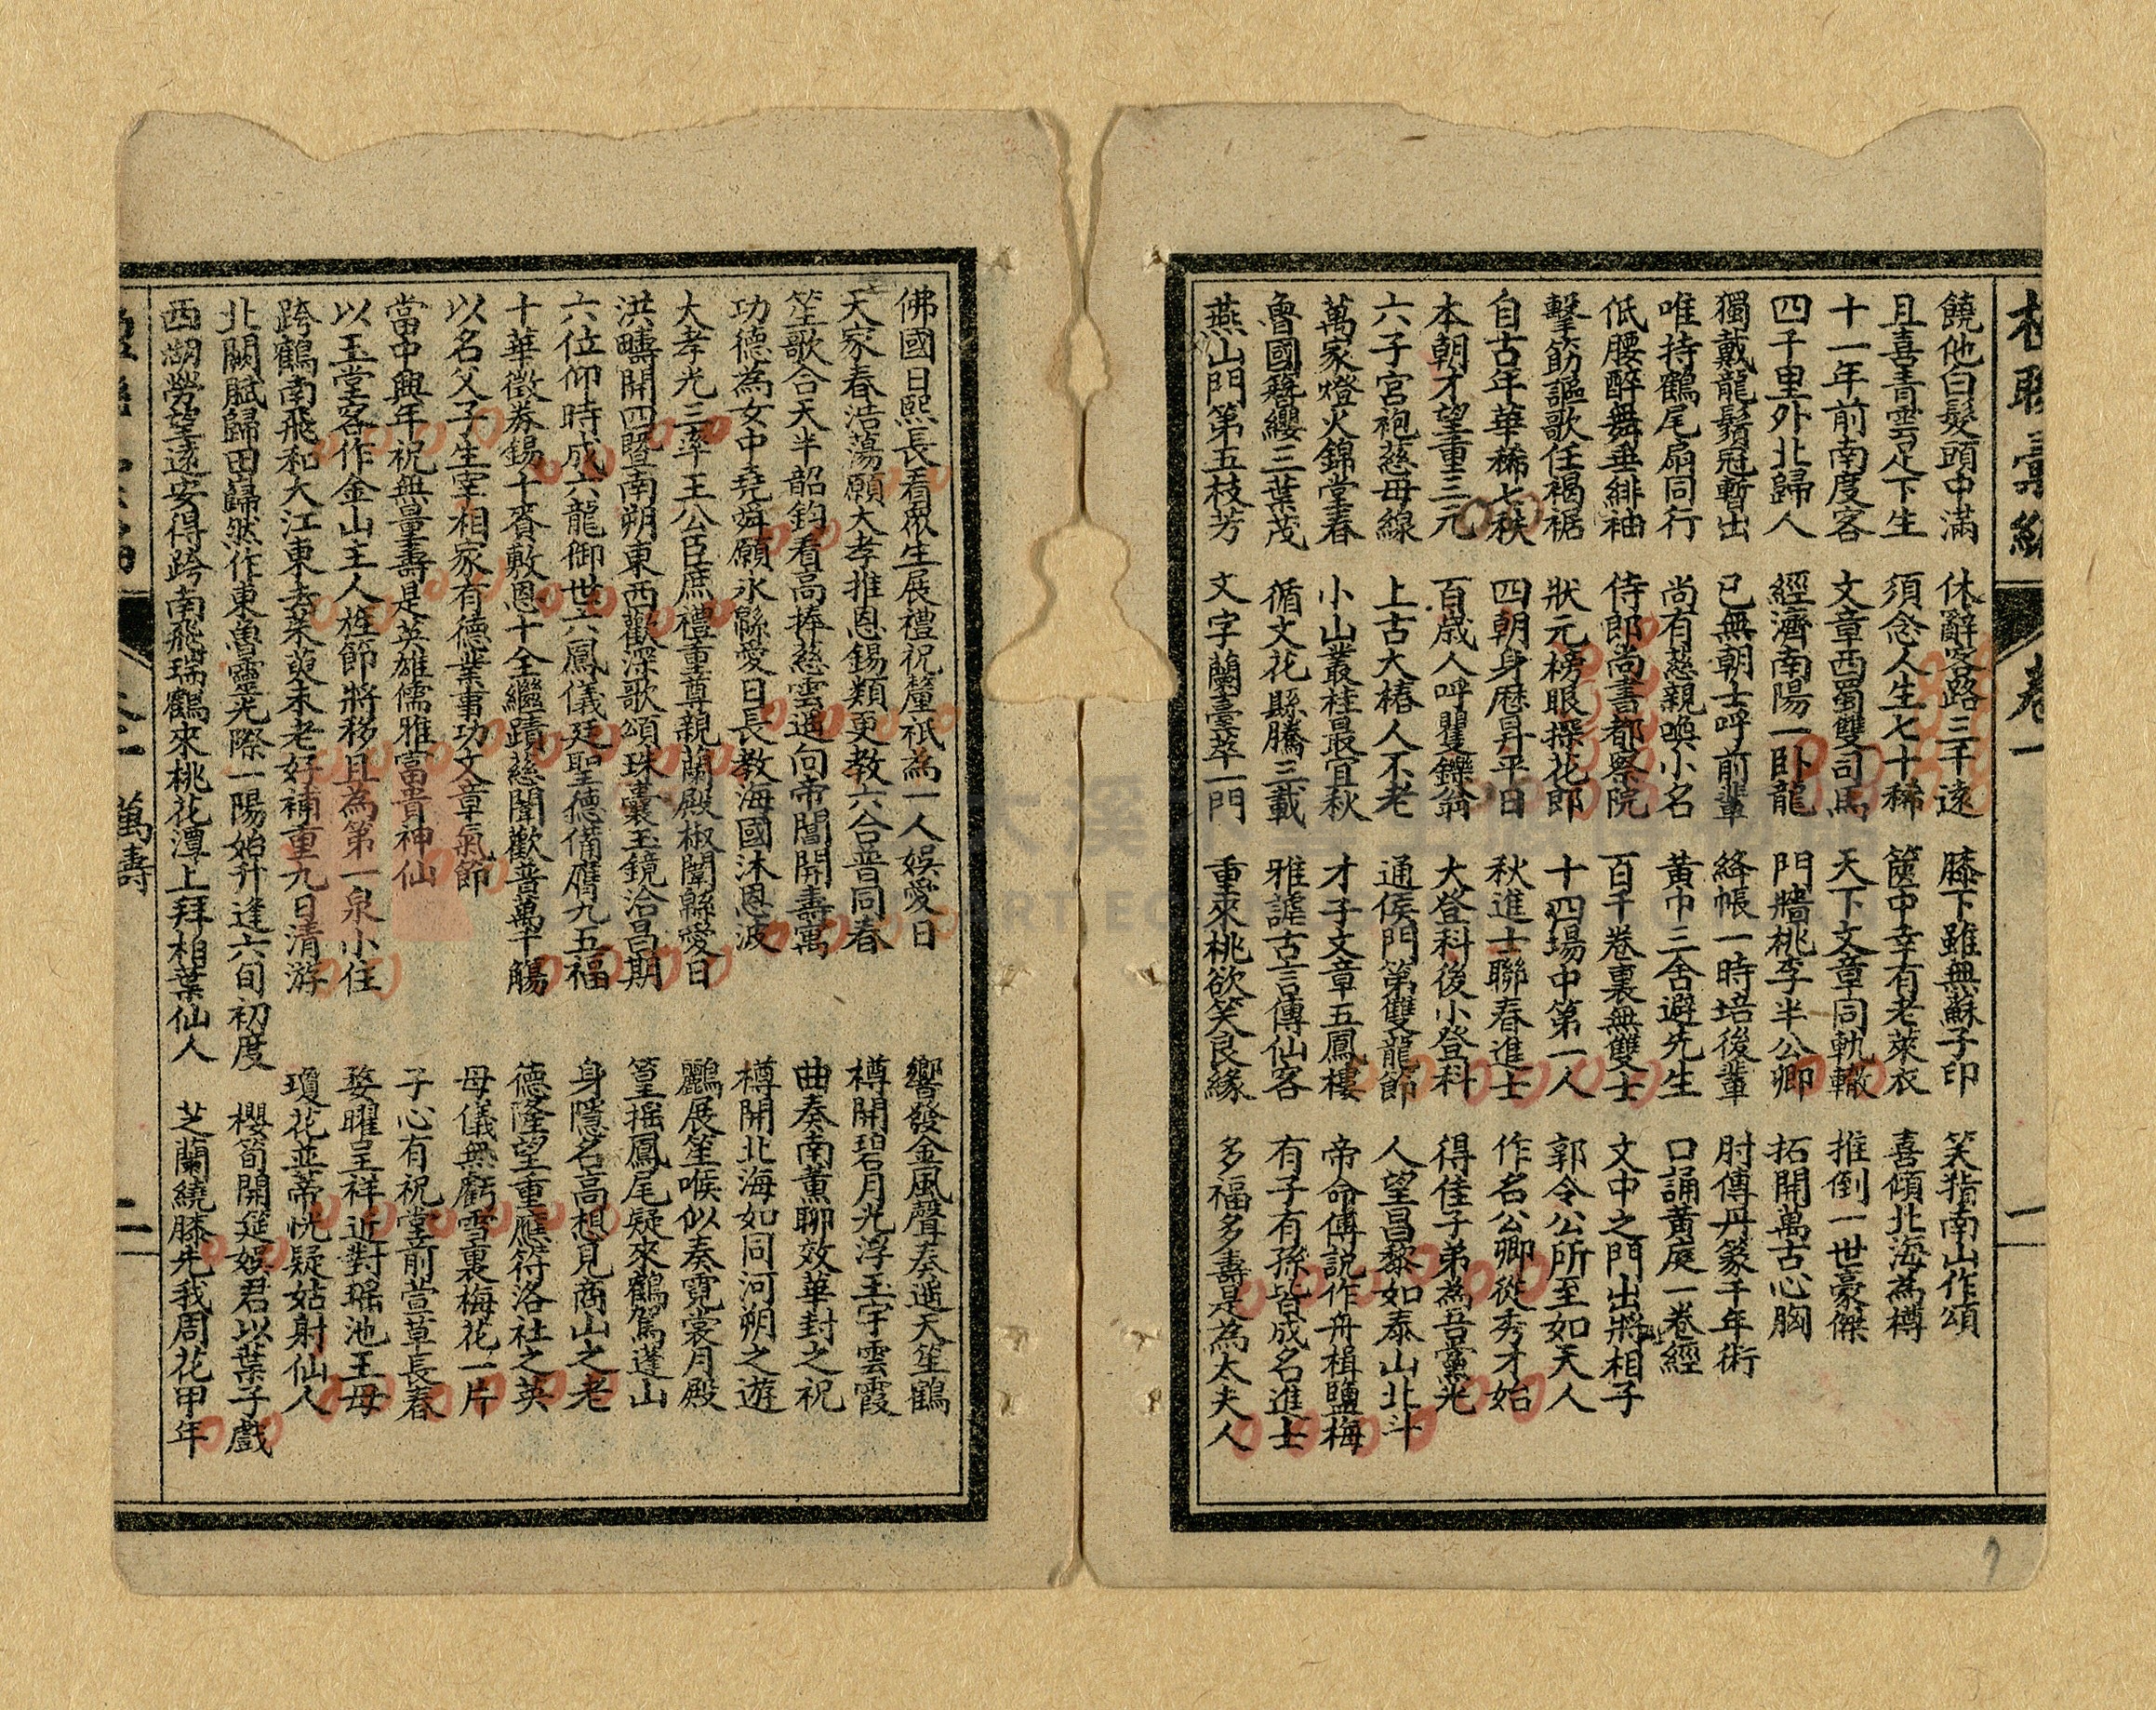 楹聯彙編 卷一 一
饒他白髮頭中滿 休辭客路三千遠 膝下雖無蘇子印 笑指南山作頌
且喜青雲足下生 須念人生七十稀 篋中幸有老萊衣 喜傾北海為樽
十一年前南度客 文章西蜀雙司馬 天下文章同軌轍 推倒一世豪傑
四千里外北歸人 經濟南陽一卧龍 門牆桃李半公卿 拓開萬古心胸
獨戴龍鬚冠暫出 已無朝士呼前輩 絳帳一時培後輩 肘傳丹篆千年術
唯持鶴尾扇同行 尚有慈親喚小名 黃巾三舍避先生 口誦黃庭一卷經
低腰醉舞垂緋袖 侍郎尚書都察院 百千卷裏無雙士 文中之門出將相子
擊筯謳歌任褐裾 狀元榜眼探花郎 十四場中第一人 郭令公所至如天人
自古年華稀七秩 四朝身歷昇平日 秋進士聯春進士 作名公卿從秀才始
本朝才望重三元 百歲人呼矍鑠翁 大登科後小登科 得佳子弟為吾黨光
六子宮袍慈母線 上古大椿人不老 通侯門第雙龍節 人望昌黎如泰山北斗
萬家燈火錦堂春 小山叢桂最宜秋 才子文章五鳳樓 帝命傅說作舟楫鹽梅
魯國簪纓三葉茂 循文花縣騰三載 雅謔古言傳仙客 有子有孫皆成名進士
燕山門第五枝芳 文字蘭臺萃一門 重來桃欲笑良緣 多福多壽是為太夫人
佛國日熙長看眾生展禮祝釐祇為一人娛愛日 響發金風聲奏遏天笙鶴
天家春浩蕩願大孝推恩錫類更教六合普同春 樽開碧月光浮玉宇雲霞
笙歌合天半韶鈞看高捧慈雲遥向帝閽開壽寓 曲奏南薰聊效華封之祝
功德為女中堯舜願永緜愛日長教海國沐恩波 樽開北海如同河朔之遊
大孝光三率王公臣庶禮重尊親蘭殿椒闈緜愛日 鸝展笙喉似奏霓裳月殿
洪疇開四暨南朔東西歡深歌頌珠囊玉鏡洽昌期 篁摇鳳尾疑來鶴駕蓬山
六位仰時成六龍御世六鳳儀廷聖德備膺九五福 身隱名高想見商山之老
十華徵券錫十賚敷恩十全繼蹟慈闈歡普萬千觴 德隆望重應符洛社之英
以名父子生宰相家有德業事功文章氣節 母儀無虧雪裏梅花一片
當中興年祝無量壽是英雄儒雅富貴神仙 子心有祝堂前萱草長春
以玉堂客作金山主人旌節將移且為第一泉小住 婺曜呈祥近對瑤池王母
跨鶴南飛和大江東去茱萸未老好補重九日清游 瓊花並蒂恍疑姑射仙人
北闕賦歸田巋然作東魯靈光際一陽始升逢六旬初度 櫻筍開筵娛君以葉子戲
西湖勞望遠安得跨南飛瑞鶴來桃花潭上拜柏葉仙人 芝蘭繞膝先我周花甲年
萬壽 二